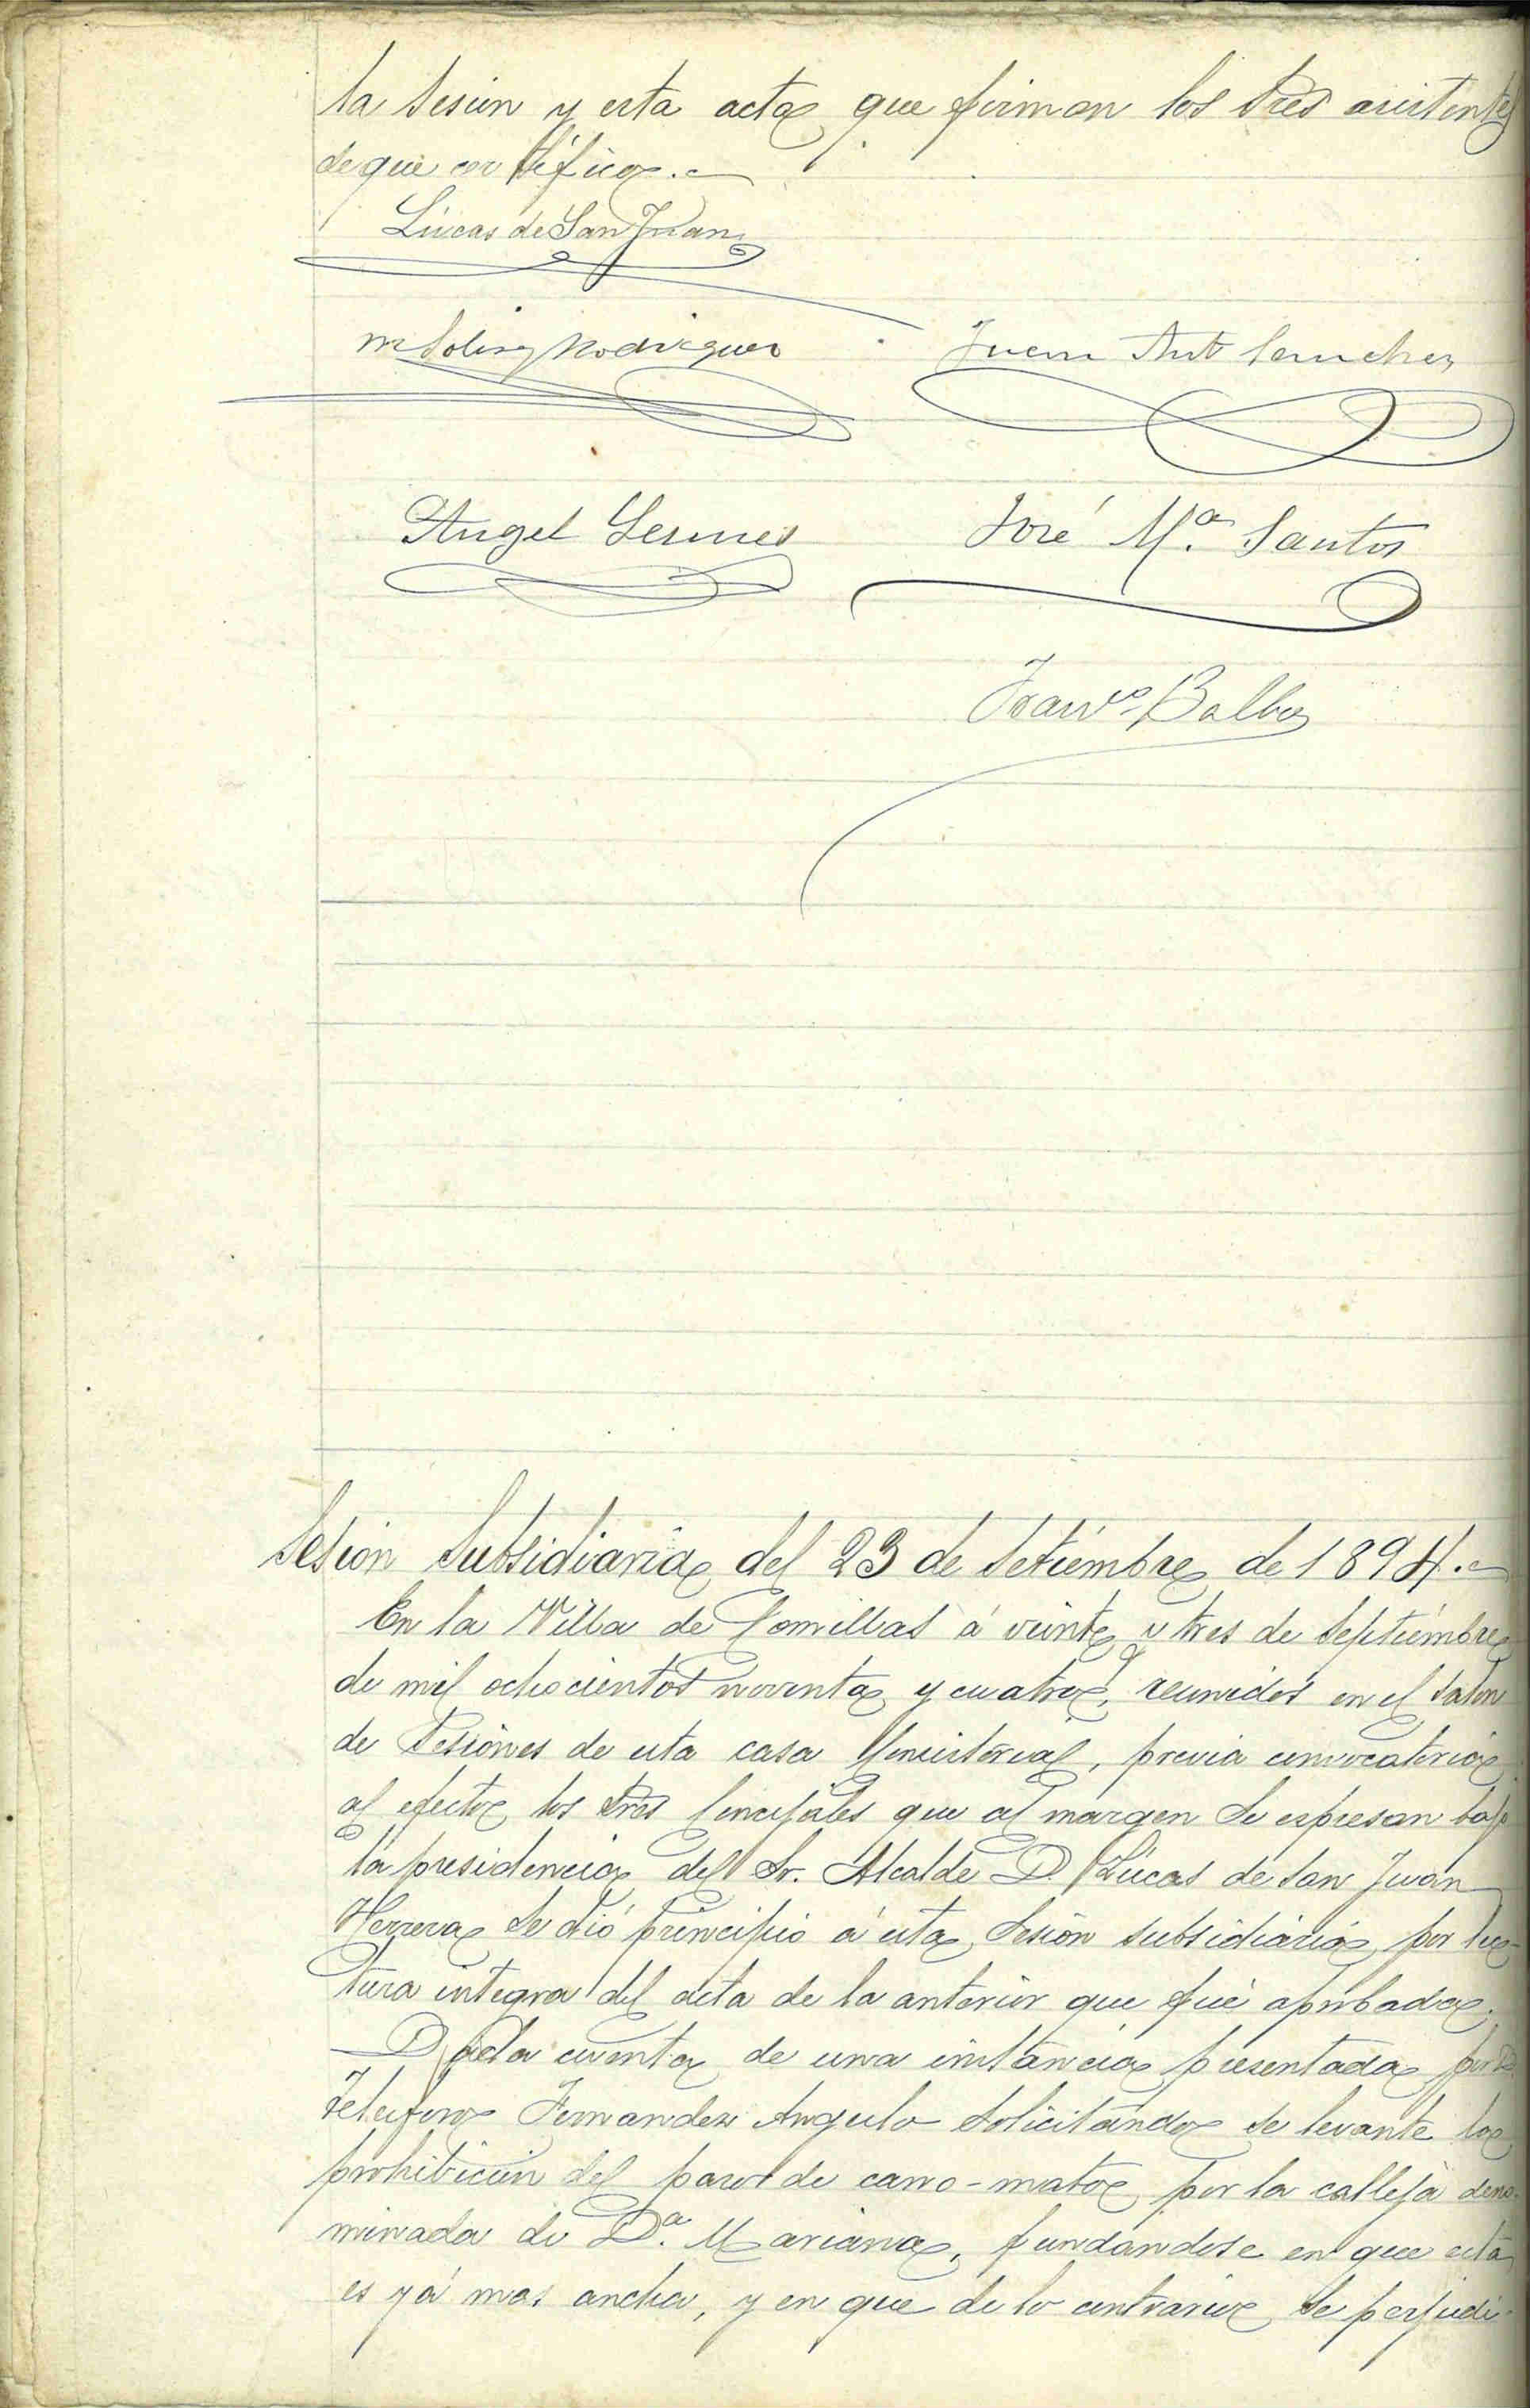 la sesion y esta acta que firman los Sres asistentes
de que certifico.=
Lúcas de San Juan
Rodriguez
Juan Ant Sanchez
Angel
José Mª. Santos
Franco Balbas
Sesion Subsidiaria del 23 de Setiembre de 1894.=
En la Villa de Comillas á veinte y tres de Septiembre
de mil ochocientos noventa y cuatro, reunidos en el salon
de Sesiones de esta casa Consistorial, previa convocatoria
al efecto, los Sres Concejales que al margen se espresan bajo
la presidencia del Sr. Alcalde D. Lúcas de San Juan
Herrera se dió principio á esta sesion subsidiaria por lec-
tura integra del acta de la anterior que fué aprobada.
Dada cuenta de una instancia presentada por D.
Telesforo Fernandez Angulo solicitando se levante la
prohibicion del paso de carro-mato por la calleja deno-
minada de Dª. Mariana, fundandose en que esta
es yá mas ancha, y en que de lo contrario se perjudi-